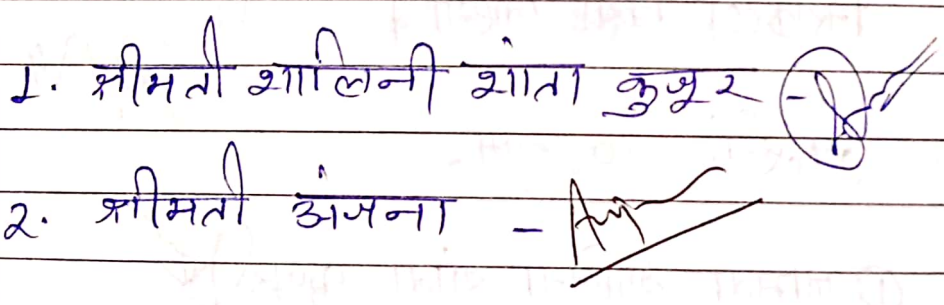 1. श्रीमती शालिनी शांता कुजूर -
२. श्रीमती अंजना -